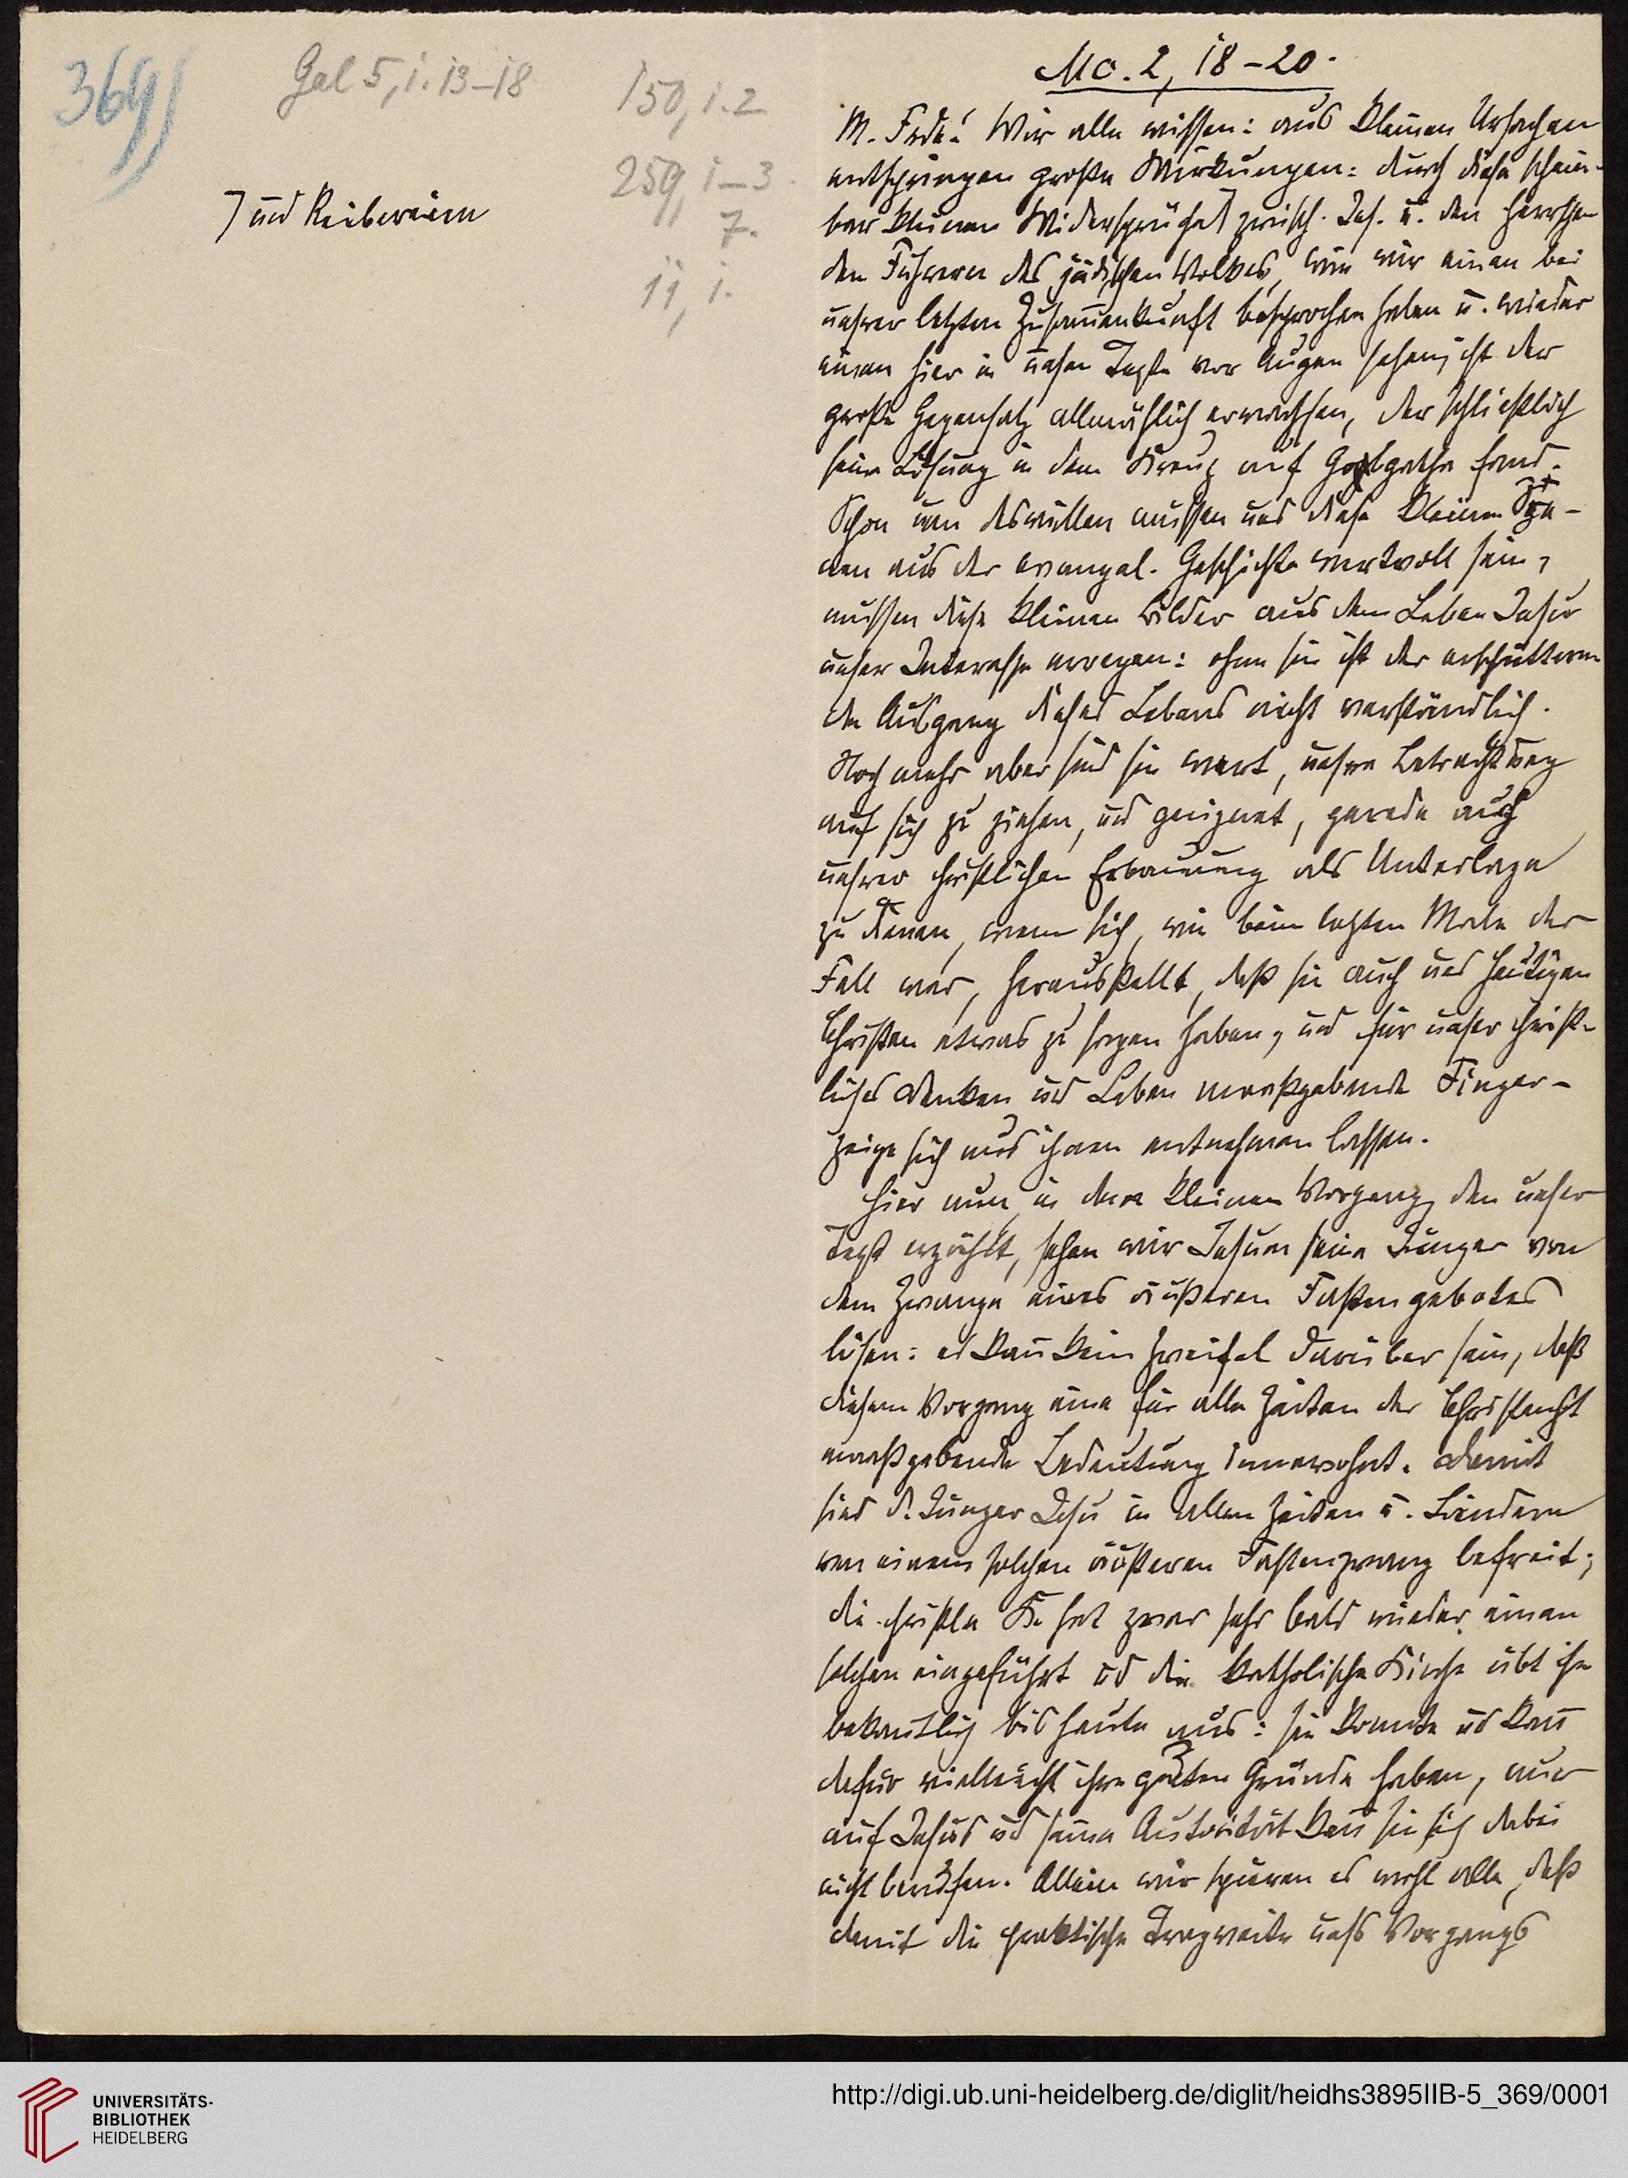 369)
Gal 5, 1. 13–18
150, 1. 2
259, 1–3.
7.
11, 1.
⁊ und Reibereien
Mc. 2, 18–20.
M. Frde! Wir alle wissen: aus kleinen Ursachen
entspringen große Wirkungen: durch diese schein-
bar kleinen Widersprüche⁊ zwisch. Jes. u. den herrschen
den Führern des jüdischen Volkes, wie wir einen bei
unsrer letzten Zusam̄enkunft besprochen haben u. wieder
einen hier in unsen Texte vor Augen sehen, ist der
große Gegensatz allmählich erwachsen, der schließlich
seine Lösung in dem Kreuz auf Golgatha fand.
Schon um deswillen müssen uns diese kleinen Sze-
nen aus der evangel. Geschichte wertvoll sein,
müssen diese kleinen Bilder aus dem Leben Jesu
unser Interesse erregen: ohne sie ist der erschüttern
de Ausgang dieses Lebens nicht verständlich.
Noch mehr aber sind sie wert, unsre Betrachtung
auf sich zu ziehen, und geeignet, gerade auch
unsrer christlichen Erbauung als Unterlage
zu dienen, wenn sich, wie beim letzten Male der
Fall war, herausstellt, daß sie auch uns heutigen
Christen etwas zu sagen haben, und für unser christ-
liches Denken und Leben maßgebende Finger-
zeige sich aus ihnen entnehmen lassen.
Hier nun, in dem kleinen Vorgang, den unser
Text erzählt, sehen wir Jesum seine Jünger von
dem Zwange eines äußeren Fastengebotes
lösen: es kan̄ kein Zweifel darüber sein, daß
diesem Vorgang eine für alle Zeiten der Christenheit
maßgebende Bedeutung innewohnt. Damit
sind d. Jünger Jesu in allen Zeiten u. Ländern
von einem solchen äußeren Fastenzwang befreit;
die christle K. hat zwar sehr bald wieder einen
solchen eingeführt ud die katholische Kirche übt ihn
bekan̄tlich bis heute aus: sie konnte ud kan̄
dafür vielleicht ihre guten Gründe haben, nur
auf Jesus ud seine Autorität kan̄ sie sich dabei
nicht berufen. Allein wir spüren es wohl alle, daß
damit die praktische Tragweite unss Vorgangs
UNIVERSITÄTS-
BIBLIOTHEK
HEIDELBERG
http://digi.ub.uni-heidelberg.de/diglit/heidhs3895IIB-5_369/0001